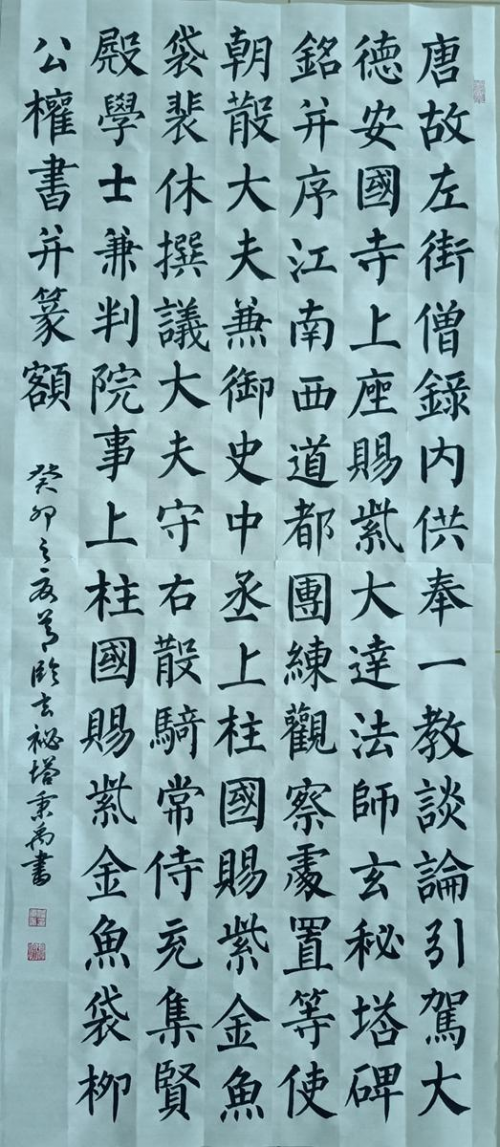 唐故左街僧錄內供奉一教談論引駕大
德安國寺上座賜紫大達法師玄秘塔碑
銘并序江南西道都團練觀察處置等使
朝散大夫兼御史中丞上柱國賜紫金魚
袋裴休撰議大夫守右散騎常侍充集賢
殿學士兼判院事上柱國賜紫金魚袋柳
公權書并篆額
癸卯之 臨玄祕塔秉禹書